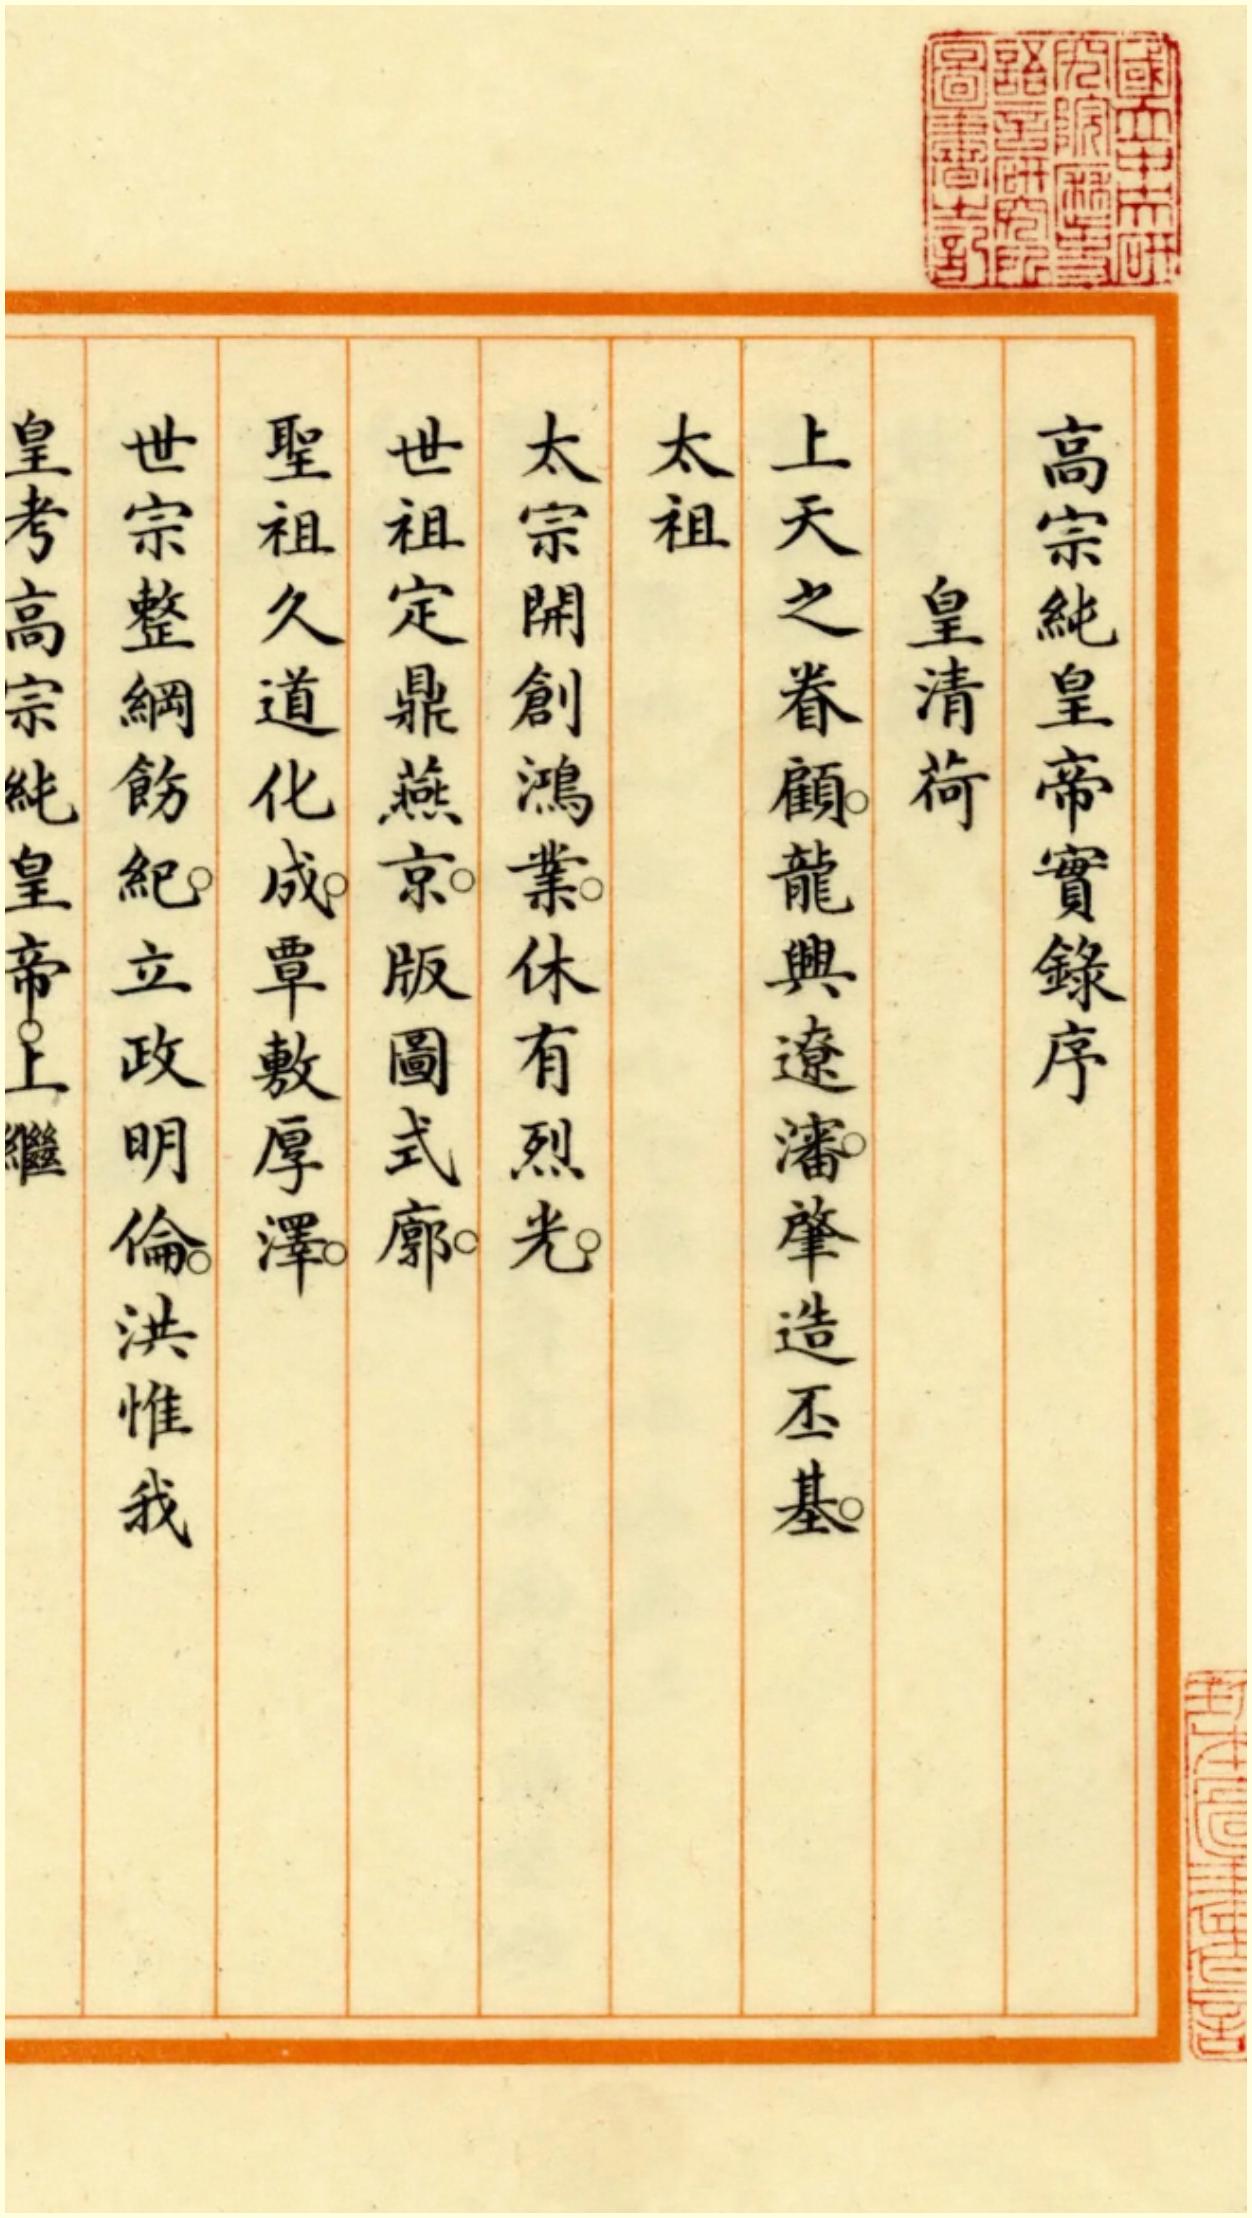 國立中央研
究院歷史
語言研究所
圖書之記
高宗純皇帝實錄序
皇清荷
上天之眷顧。龍興遼瀋。肇造丕基。
太祖
太宗開創鴻業。休有烈光。
世祖定鼎燕京。版圖式廓。
聖祖久道化成。覃敷厚澤。
世宗整綱飭紀。立政明倫。洪惟我
皇考高宗純皇帝。上繼